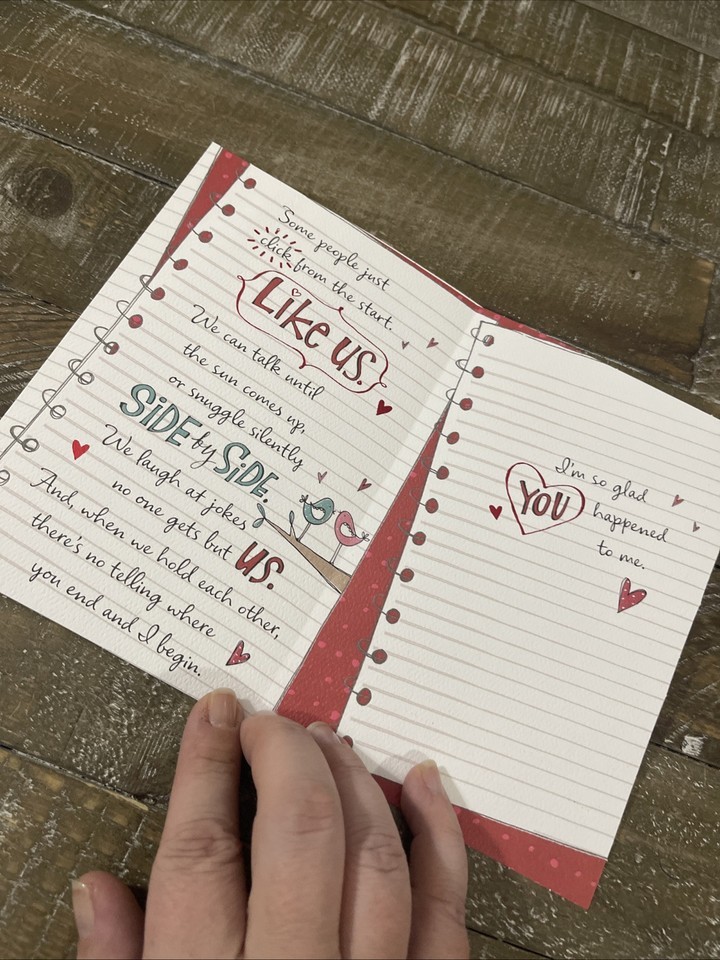 Some people just
click from the start.
Like us.
We can talk until
the sun comes up,
or snuggle silently
SiDE by SiDE.
We laugh at jokes
no one gets but us.
And, when we hold each other,
there's no telling where
you end and I begin.
I'm so glad
YOU happened
to me.